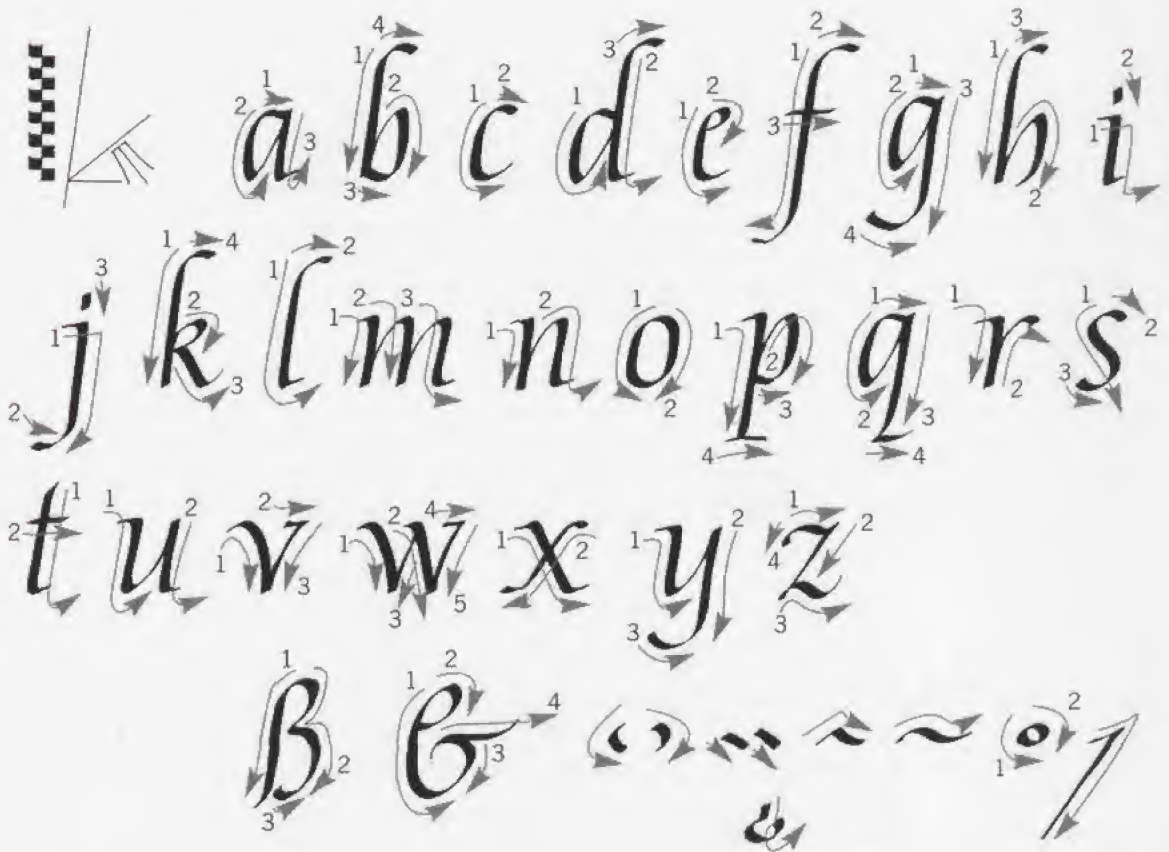 a b c d e f g h i
j k l m n o p q r s
t u v w x y z
ß &